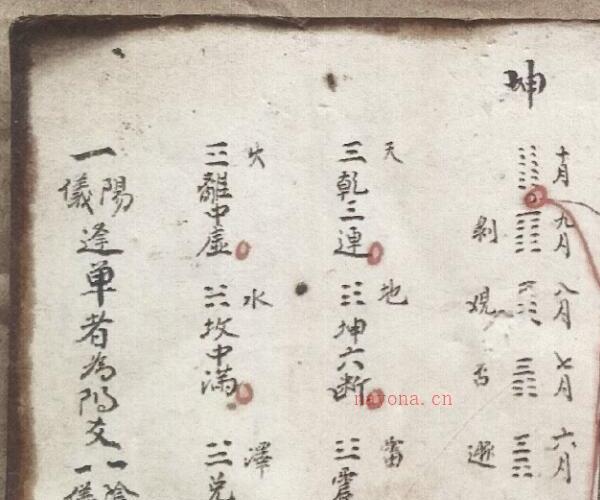 坤
十月 九月 八月 七月 六月
剝 覌 否 遯
天 地 雷
三 乾三連 坤六断 震
火 水 澤
離中虚 坎中滿 兑
一 陽儀 逢单者為陽爻 一陰儀
nayona.cn